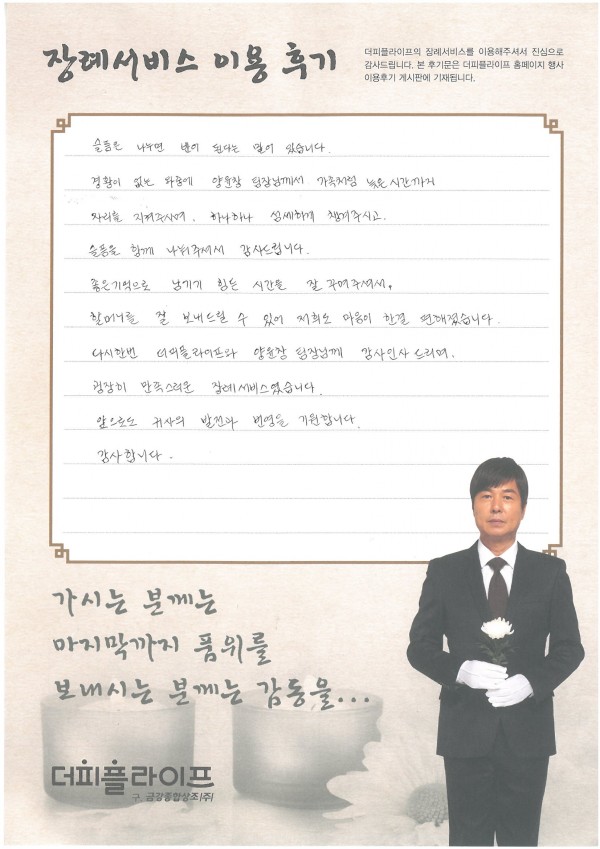 장례서비스 이용 후기
더피플라이프의 장례서비스를 이용해주셔서 진심으로
감사드립니다. 본 후기문은 더피플라이프 홈페이지 행사
이용후기 게시판에 기재됩니다.
슬픔은 나누면 반이 된다는 말이 있습니다.
경황이 없는 와중에 양윤창 팀장님께서 가족처럼 늦은시간까지
자리를 지켜주시며, 하나하나 섬세하게 챙겨주시고.
슬픔을 함께 나눠주셔서 감사드립니다.
좋은기억으로 남기기 힘든 시간을 잘 꾸며주셔서,
할머니를 잘 보내드릴 수 있어 저희도 마음이 한결 편해졌습니다.
다시한번 더피플라이프와 양윤창 팀장님께 감사인사 드리며,
굉장히 만족스러운 장례서비스였습니다.
앞으로도 귀사의 발전과 번영을 기원합니다.
감사합니다.
가시는 분께는
마지막까지 품위를
보내시는 분께는 감동을...
더피플라이프
구. 금강종합상조(주)